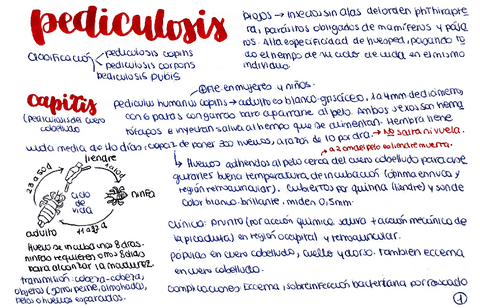 pediculosis
Clasificación
pediculosis capitis
pediculosis corporis
pediculosis pubis
piojos → insectos sin alas del orden phthirapte
ra, parásitos obligados de mamíferos y pája
ros. Alta especificidad de huésped, pasando to
do el tiempo de su ciclo de vida en el mismo
individuo.
capitis
(pediculosis del cuero
cabelludo)
en mujeres y niños.
pediculus humanus capitis → adulto es blanco-grisáceo, 1 a 4mm de diámetro,
con 6 patas con garras para aferrarse al pelo. Ambos sexos son hema
tófagos e inyectan saliva al tiempo que se alimentan. Hembra tiene
vida media de 40 días; capaz de poner 300 huevos, a razón de 10 por día.
→ No salta ni vuela.
→ a 2cm del pelo es liendre muerta.
→ Huevos adheridos al pelo cerca del cuero cabelludo para ase
gurarles buena temperatura de incubación (clima envos y
región retroauricular). Cubiertos por quitina (liendre) y son de
color blanco-brillante, miden 0,5mm.
liendre
ninfa
adulto
ciclo
de
vida
Huevo se incuba unos 8 días.
ninfas requieren otros 8 días
para alcanzar la madurez.
transmisión: cabeza-cabeza,
objetos (gorro, peine, almohada),
pelos o huevos esparcidos.
Clínica: prurito (por acción química saliva + acción mecánica de
la picadura) en región occipital y retroauricular.
pápulas en cuero cabelludo, cuello y dorso. También eccema
en cuero cabelludo.
complicaciones: Eccema, sobreinfección bacteriana por rascado
1